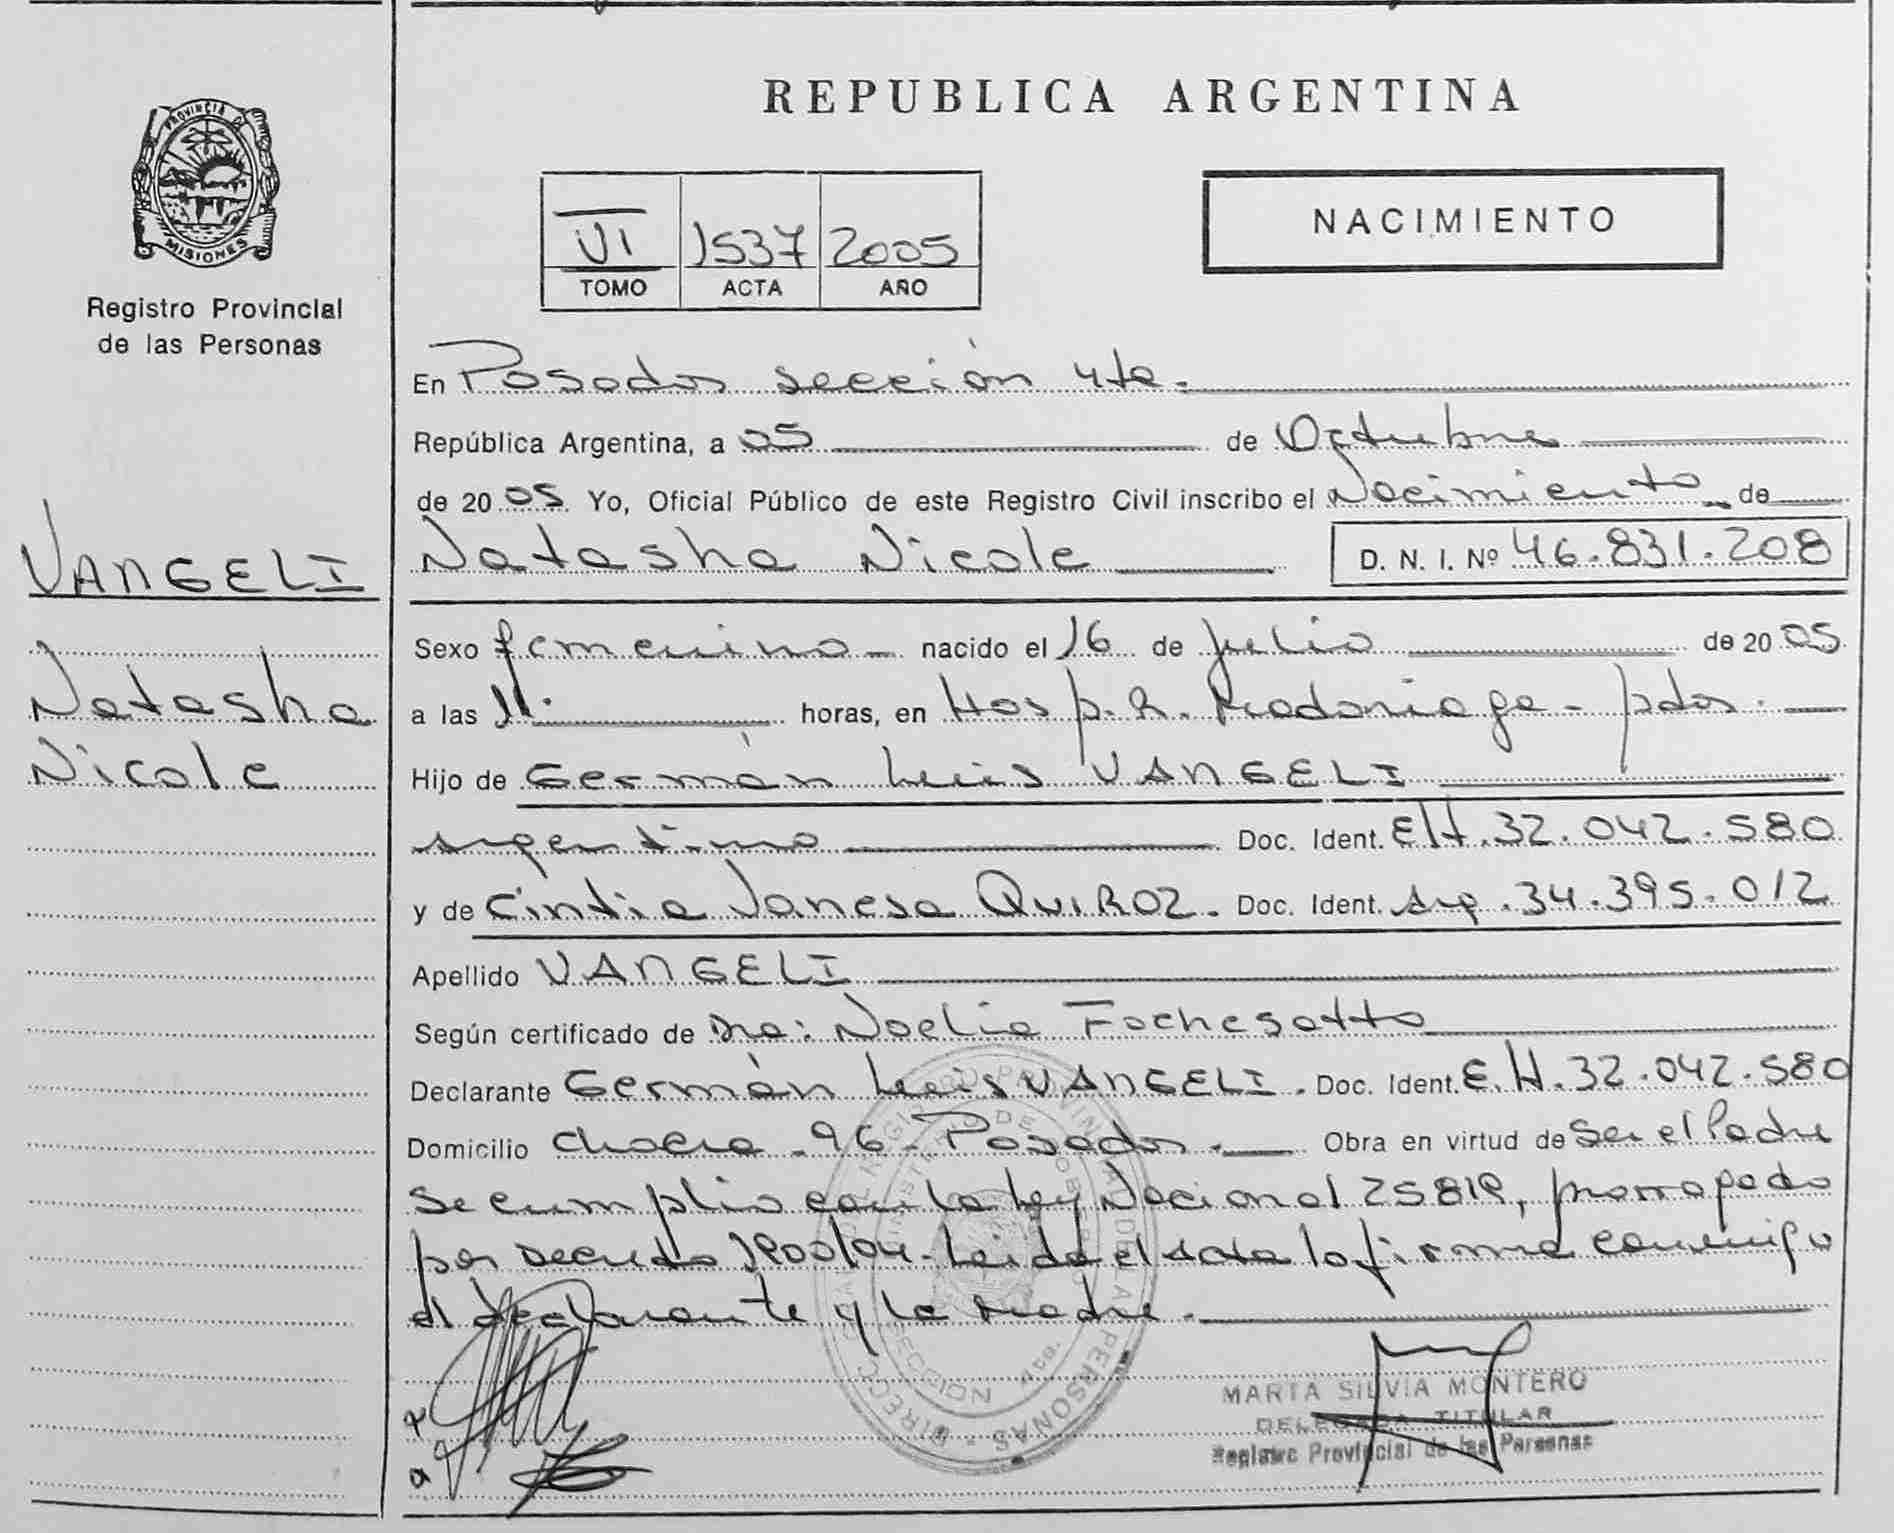 REPUBLICA ARGENTINA
PROVINCIA DE
MISIONES
Registro Provincial
de las Personas
VI 1537 2005
TOMO ACTA AÑO
NACIMIENTO
En Posadas sección 4ta.
República Argentina, a 05 de Octubre
de 2005 Yo, Oficial Público de este Registro Civil inscribo el Nacimiento de
VANGELI
Natasha Nicole D. N. I. Nº 46.831.208
Sexo femenino nacido el 16 de julio de 2005
Natasha
a las 11. horas, en Hosp. R. Madariaga - pdas.
Nicole
Hijo de Germán Luis VANGELI
argentino Doc. Ident. E/t. 32.042.580
y de Cintia Vanesa QUIROZ. Doc. Ident. Arg. 34.395.012
Apellido VANGELI
Según certificado de Dra: Noelia Fochesatto
Declarante Germán Luis VANGELI. Doc. Ident. E.t. 32.042.580
Domicilio chacra 96 - Posadas. Obra en virtud de Ser el Padre
Se cumplio con la ley Nacional 25819, prorrogado
por Decreto 1900/04 - Leida el Acta la firma conmigo
el declarante y la Madre.
MARTA SILVIA MONTERO
DELEGADA TITULAR
Registro Provincial de las Personas